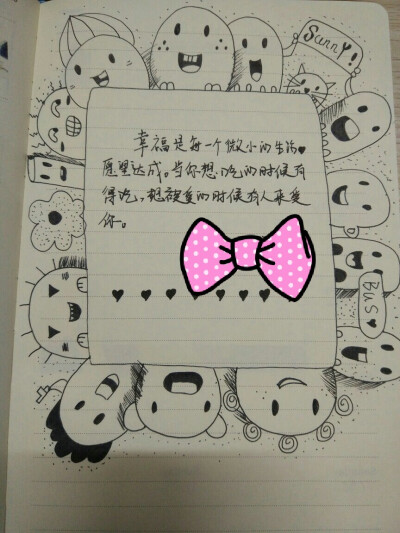 Sunny!
幸福是每一个微小的生活
愿望达成。当你想吃的时候有
得吃,想被爱的时候有人来爱
你。
Bus